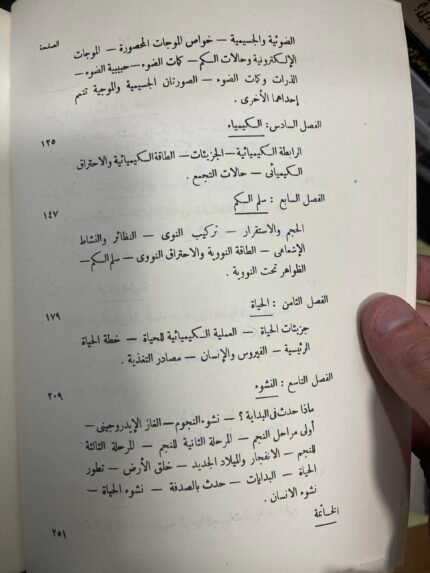 الصفحة
الضوئية والجسيمية — خواص الموجات المحصورة — الموجات
الإلكترونية وحالات الكم — كمات الضوء — حبيبية الضوء —
الذرات وكمات الضوء — الصورتان الجسيمية والموجية تتمم
إحداهما الأخرى .
الفصل السادس : الكيمياء ١٢٥
الرابطة الكيميائية — الجزيئات — الطاقة الكيميائية والاحتراق
الكيميائى — حالات التجمع .
الفصل السابع : سلم الكم ١٤٧
الحجم والاستقرار — تركيب النوى — النظائر والنشاط
الإشعاعى — الطاقة النووية والاحتراق النووى — سلم الكم —
الظواهر تحت النووية .
الفصل الثامن : الحياة ١٧٩
جزيئات الحياة — العملية الكيميائية للحياة — خطة الحياة
الرئيسية — الفيروس والإنسان — مصادر التغذية .
الفصل التاسع : النشوء ٢٠٩
ماذا حدث فى البداية ؟ — نشوء النجوم — الغاز الإيدروجينى —
أولى مراحل النجم — المرحلة الثانية للنجم — المرحلة الثالثة
للنجم — الانفجار والميلاد الجديد — خلق الأرض — تطور
الحياة — البدايات — حدث بالصدفة — نشوء الحياة —
نشوء الانسان .
الخاتمة ٢٥١